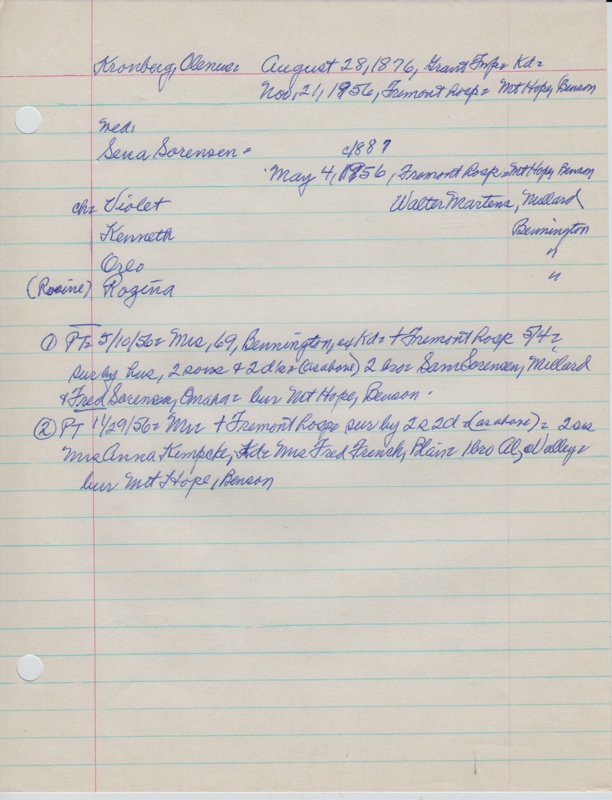 Kronberg, Olenus= August 28, 1876, Grant Twp= Kd=
Nov, 21, 1956, Fremont Hosp= Mt Hope, Benson
wed:
Sena Sorensen = c1887
May 4, 1956, Fremont Hosp= Mt Hope, Benson
ch= Violet Walter Martens, Millard
Kenneth Bennington
Orlo "
(Rosine) Rogina "
① PT= 5/10/56= Mrs, 69, Bennington, ex Kd= + Fremont Hosp 5/4=
sur by hus, 2 sons & 2 d's= (as above) 2 bro= Sam Sorensen, Millard
& Fred Sorensen, Omaha= bur Mt Hope, Benson.
② PT 11/29/56= Mr= + Fremont Hosp= sur by 2 s 2 d = (as above) = 2 sis
Mrs Anna Kempcke, Kd= Mrs Fred French, Blair= 1 bro Al, Valley=
bur Mt Hope, Benson